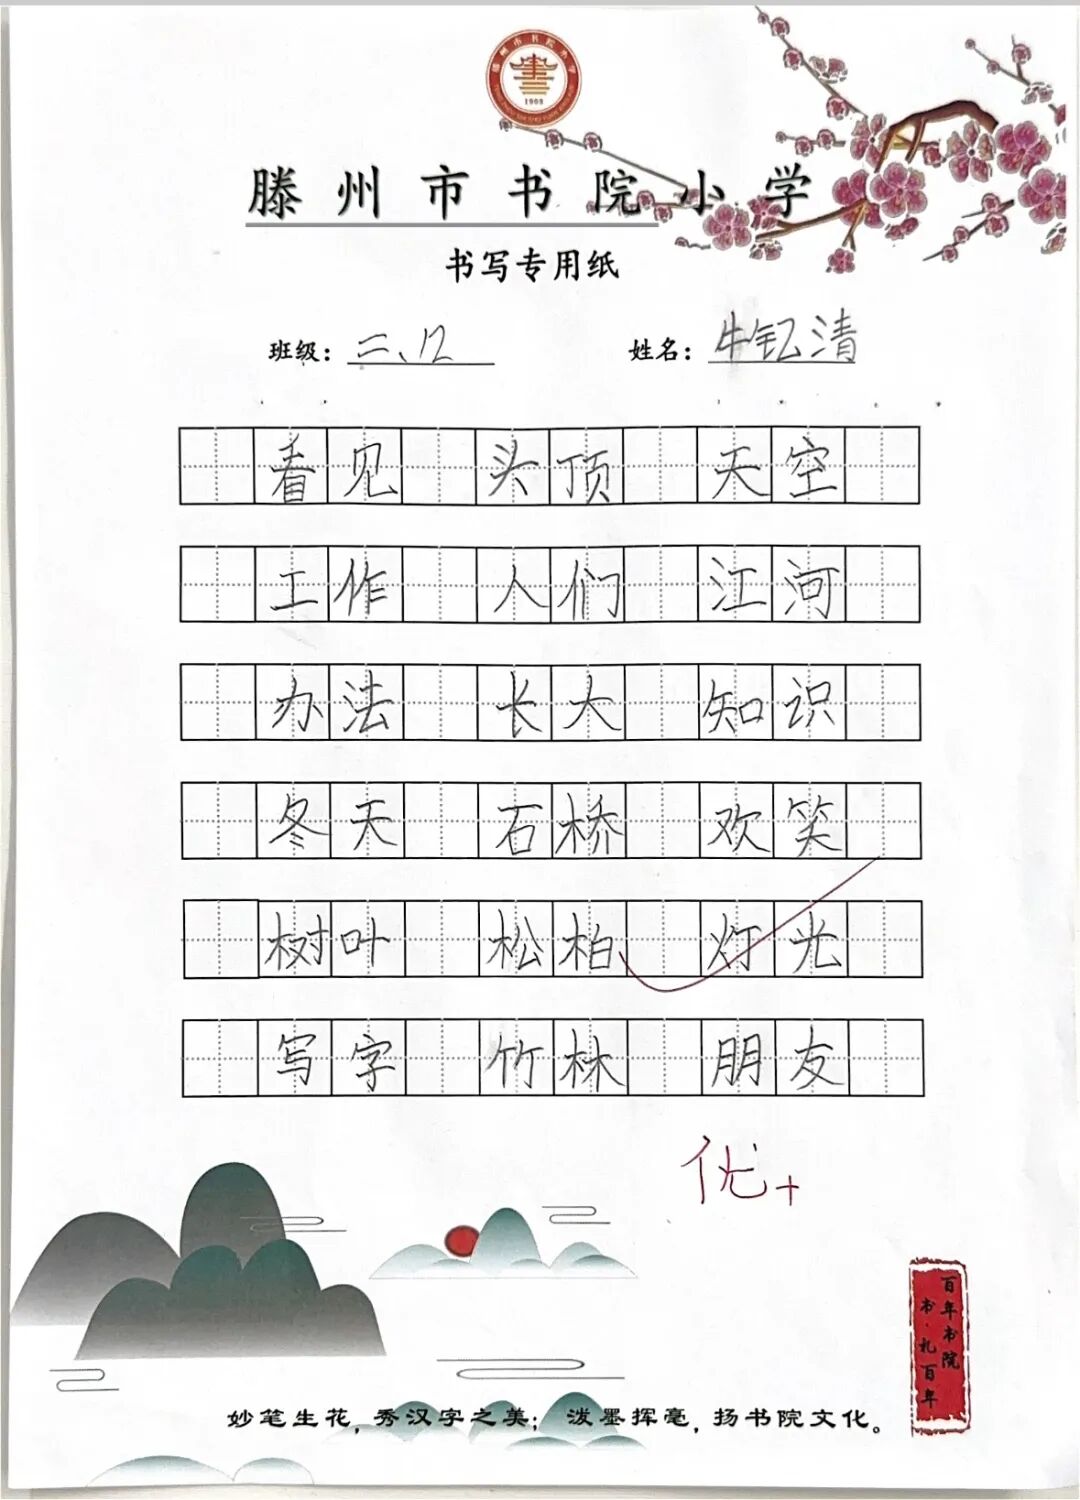 1903
滕州市书院小学
书写专用纸
班级：二、12 姓名：牛钇清
看见 头顶 天空
工作 人们 江河
办法 长大 知识
冬天 石桥 欢笑
树叶 松柏 灯光
写字 竹林 朋友
优+
百年书院
书·礼百年
妙笔生花，秀汉字之美；泼墨挥毫，扬书院文化。